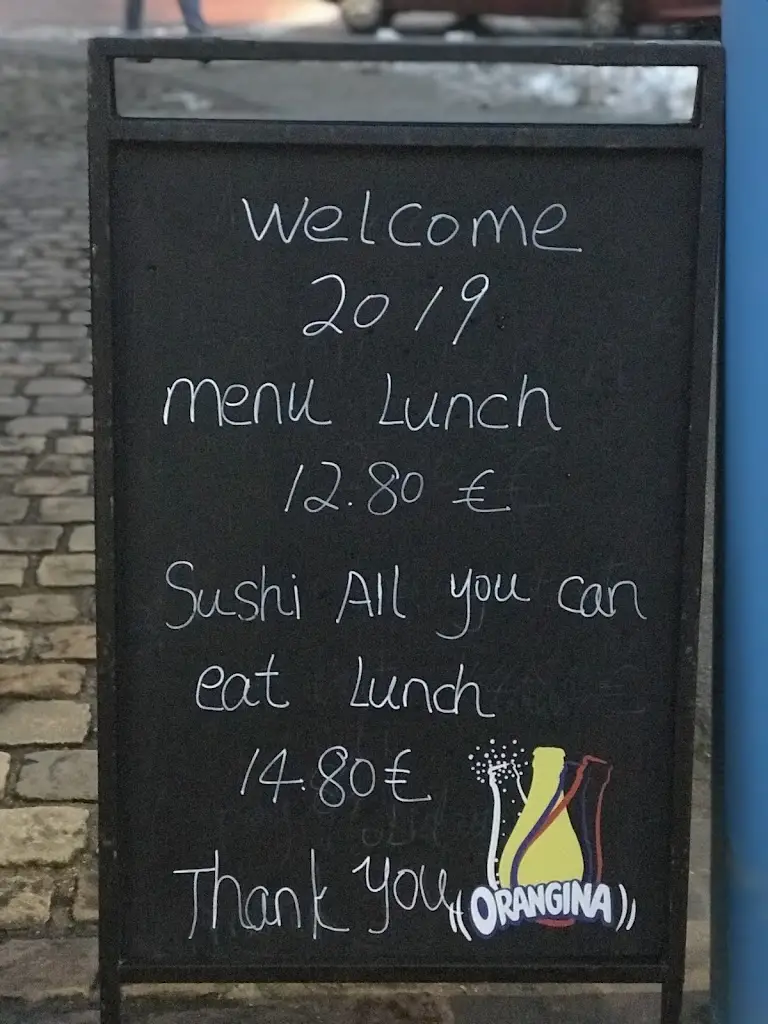 Welcome
2019
menu Lunch
12.80 €
Sushi All you can
eat Lunch
14.80€
Thank you
ORANGINA